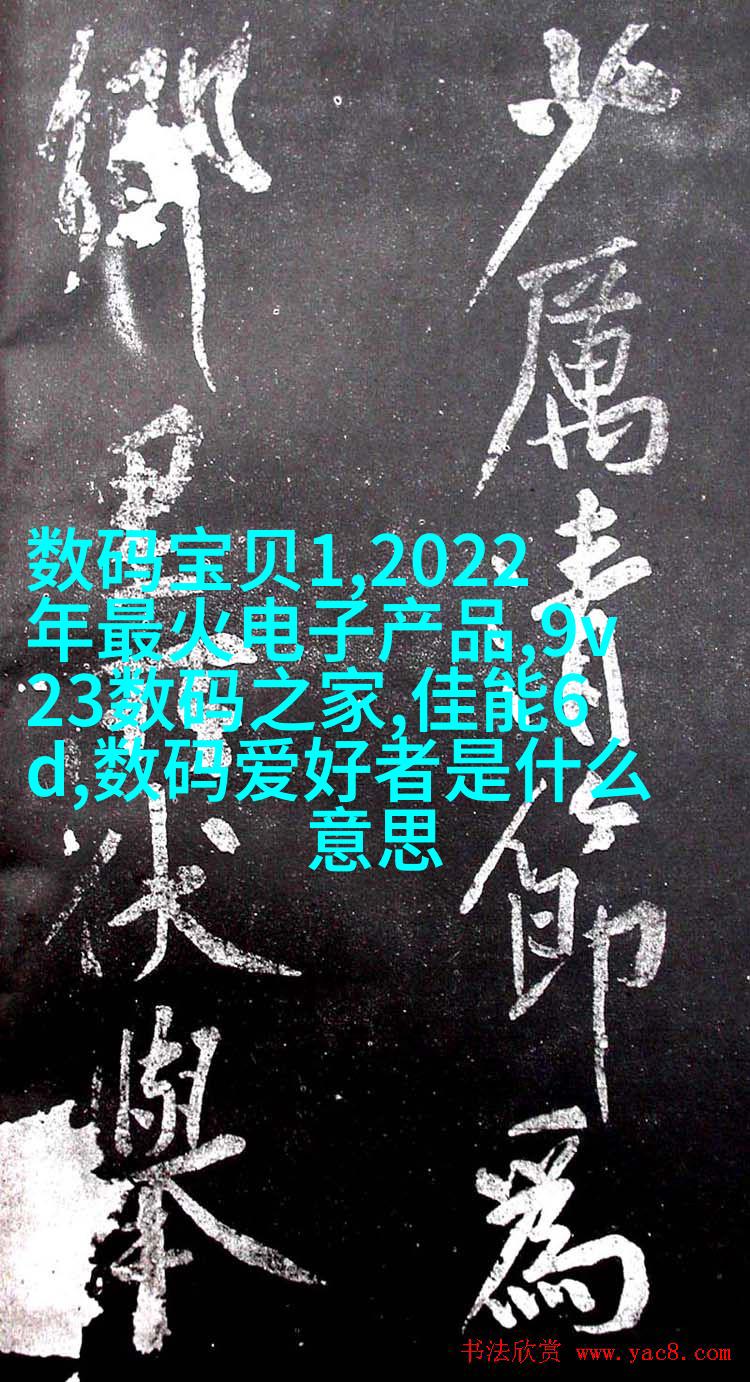 少厲清節為
鄉里伏舉
数码宝贝1,2022
年最火电子产品,9v
23数码之家,佳能6
d,数码爱好者是什么
意思
书法欣赏 www.yac8.com